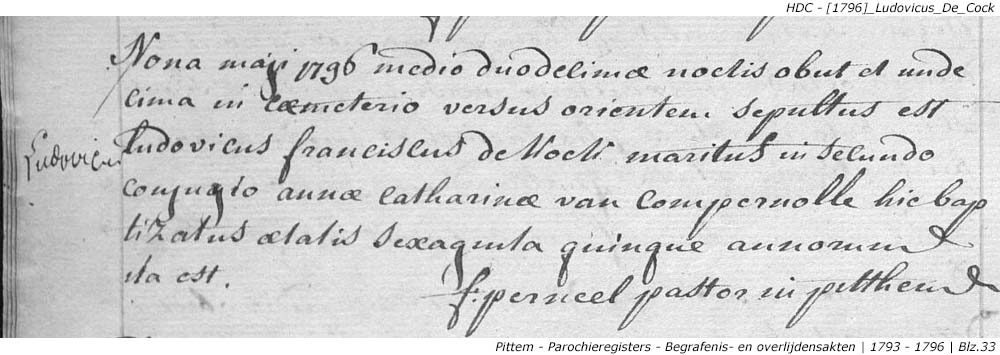 HDC - [1796]_Ludovicus_De_Cock
Nona maji 1796 medio duodecimæ noctis obut et unde
cima in cæmeterio versus orientem sepultus est
Ludovicus
Ludovicus franciscus deKock maritus in secundo
conjugio annæ catharinæ van Compernolle hic bap
tizatus ætatis sexaginta quinque annorum
ita est.
f: perneel pastor in pitthem
Pittem - Parochieregisters - Begrafenis- en overlijdensakten | 1793 - 1796 | Blz.33